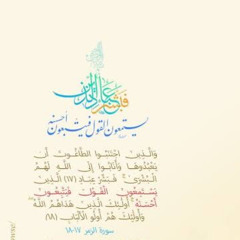 فبشر عباد الذين
يستمعون القول فيتبعون أحسنه
وَالَّذِينَ اجْتَنَبُوا الطَّاغُوتَ أَن
يَعْبُدُوهَا وَأَنَابُوا إِلَى اللَّهِ لَهُمُ
الْبُشْرَىٰ فَبَشِّرْ عِبَادِ (١٧) الَّذِينَ
يَسْتَمِعُونَ الْقَوْلَ فَيَتَّبِعُونَ
أَحْسَنَهُ أُولَٰئِكَ الَّذِينَ هَدَاهُمُ اللَّهُ
وَأُولَٰئِكَ هُمْ أُولُو الْأَلْبَابِ (١٨)
سورة الزمر ١٧-١٨